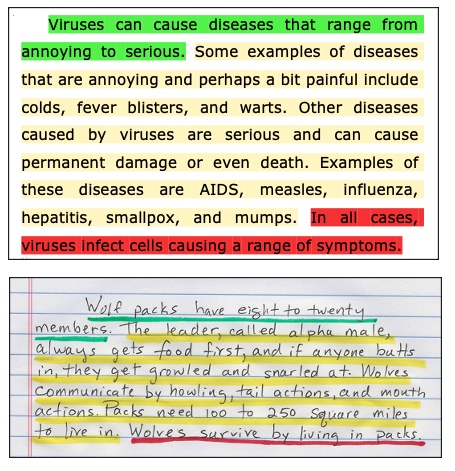 Viruses can cause diseases that range from
annoying to serious. Some examples of diseases
that are annoying and perhaps a bit painful include
colds, fever blisters, and warts. Other diseases
caused by viruses are serious and can cause
permanent damage or even death. Examples of
these diseases are AIDS, measles, influenza,
hepatitis, smallpox, and mumps. In all cases,
viruses infect cells causing a range of symptoms.
Wolf packs have eight to twenty
members. The leader, called alpha male,
always gets food first, and if anyone butts
in, they get growled and snarled at. Wolves
communicate by howling, tail actions, and mouth
actions. Packs need 100 to 250 square miles
to live in. Wolves survive by living in packs.